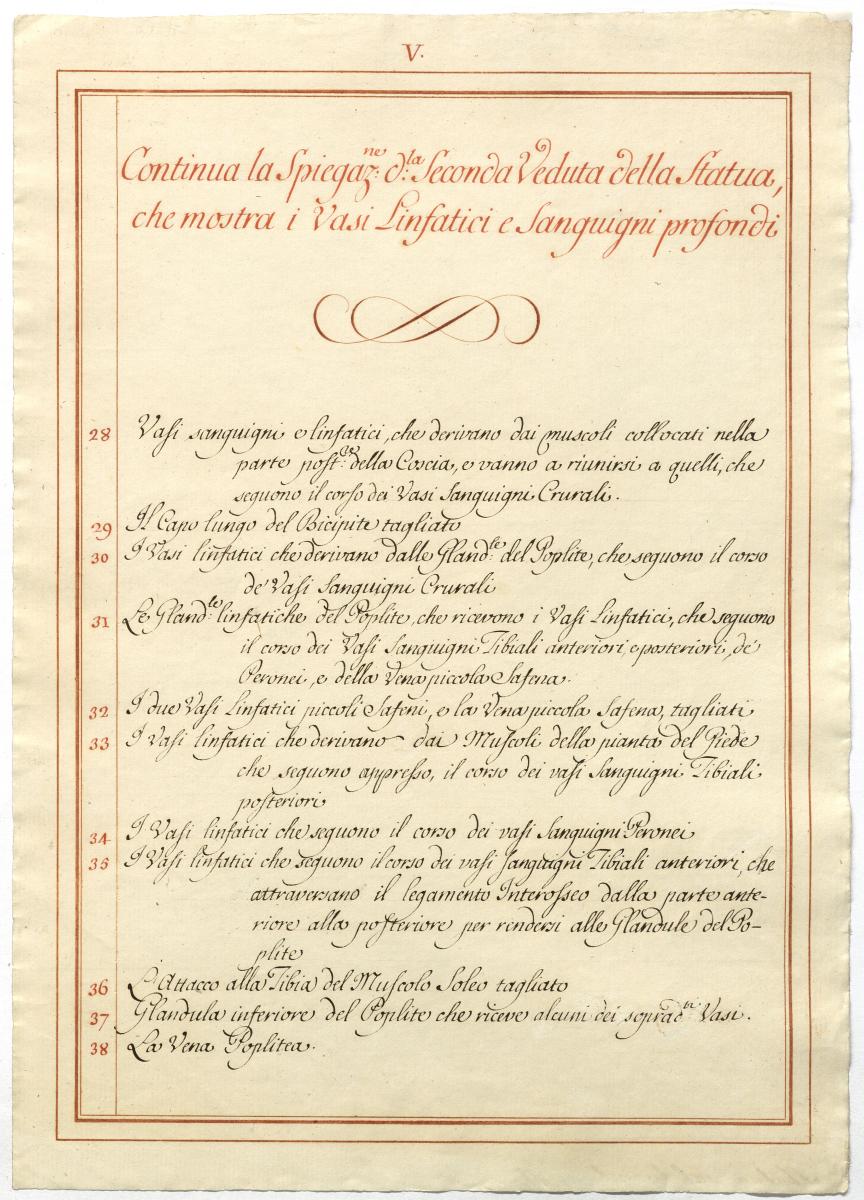 V.
Continua la Spiegaz:ne d:la Seconda Veduta della Statua,
che mostra i Vasi Linfatici e Sanguigni profondi
28 Vasi sanguigni e linfatici, che derivano dai muscoli collocati nella
parte post:re della Coscia, e vanno a riunirsi a quelli, che
seguono il corso dei Vasi Sanguigni Crurali.
29 Il Capo lungo del Bicipite tagliato
30 I Vasi linfatici che derivano dalle Gland:le del Poplite, che seguono il corso
de' Vasi Sanguigni Crurali
31 Le Gland:le linfatiche del Poplite, che ricevono i Vasi Linfatici, che seguono
il corso dei Vasi Sanguigni Tibiali anteriori, e posteriori, de'
Peronei, e della Vena piccola Safena.
32 I due Vasi Linfatici piccoli Safeni, e la Vena piccola Safena, tagliati
33 I Vasi linfatici che derivano dai Muscoli della pianta del Piede
che seguono appresso, il corso dei vasi Sanguigni Tibiali
posteriori
34 I Vasi linfatici che seguono il corso dei vasi Sanguigni Peronei
35 I Vasi linfatici che seguono il corso dei vasi Sanguigni Tibiali anteriori, che
attraversano il legamento Interosseo dalla parte ante-
riore alla posteriore per rendersi alle Glandule del Po-
plite
36 L'Attacco alla Tibia del Muscolo Soleo tagliato
37 Glandula inferiore del Poplite che riceve alcuni dei soprad:ti Vasi.
38 La Vena Poplitea.